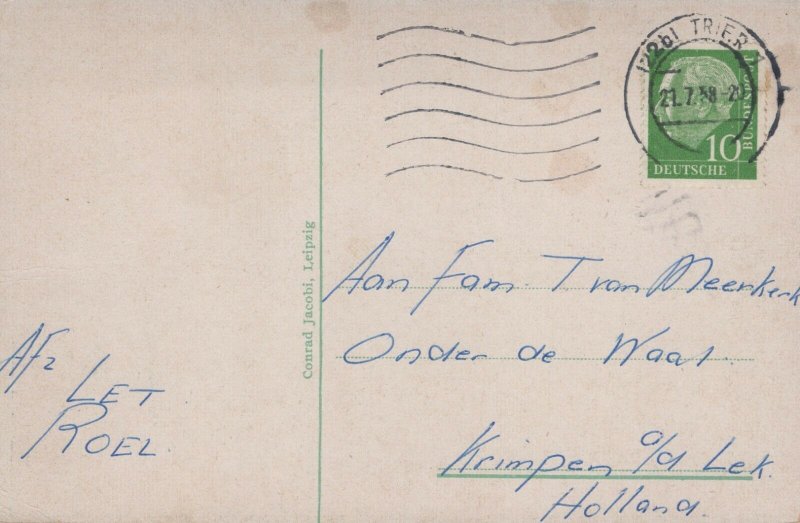 (22b) TRIER
21.7.58-20
10
DEUTSCHE
BUNDESPOST
Conrad Jacobi, Leipzig
Aan Fam. T van Meerkerk
Onder de Waal.
Krimpen a/d Lek.
Holland.
Afz
LET
ROEL.